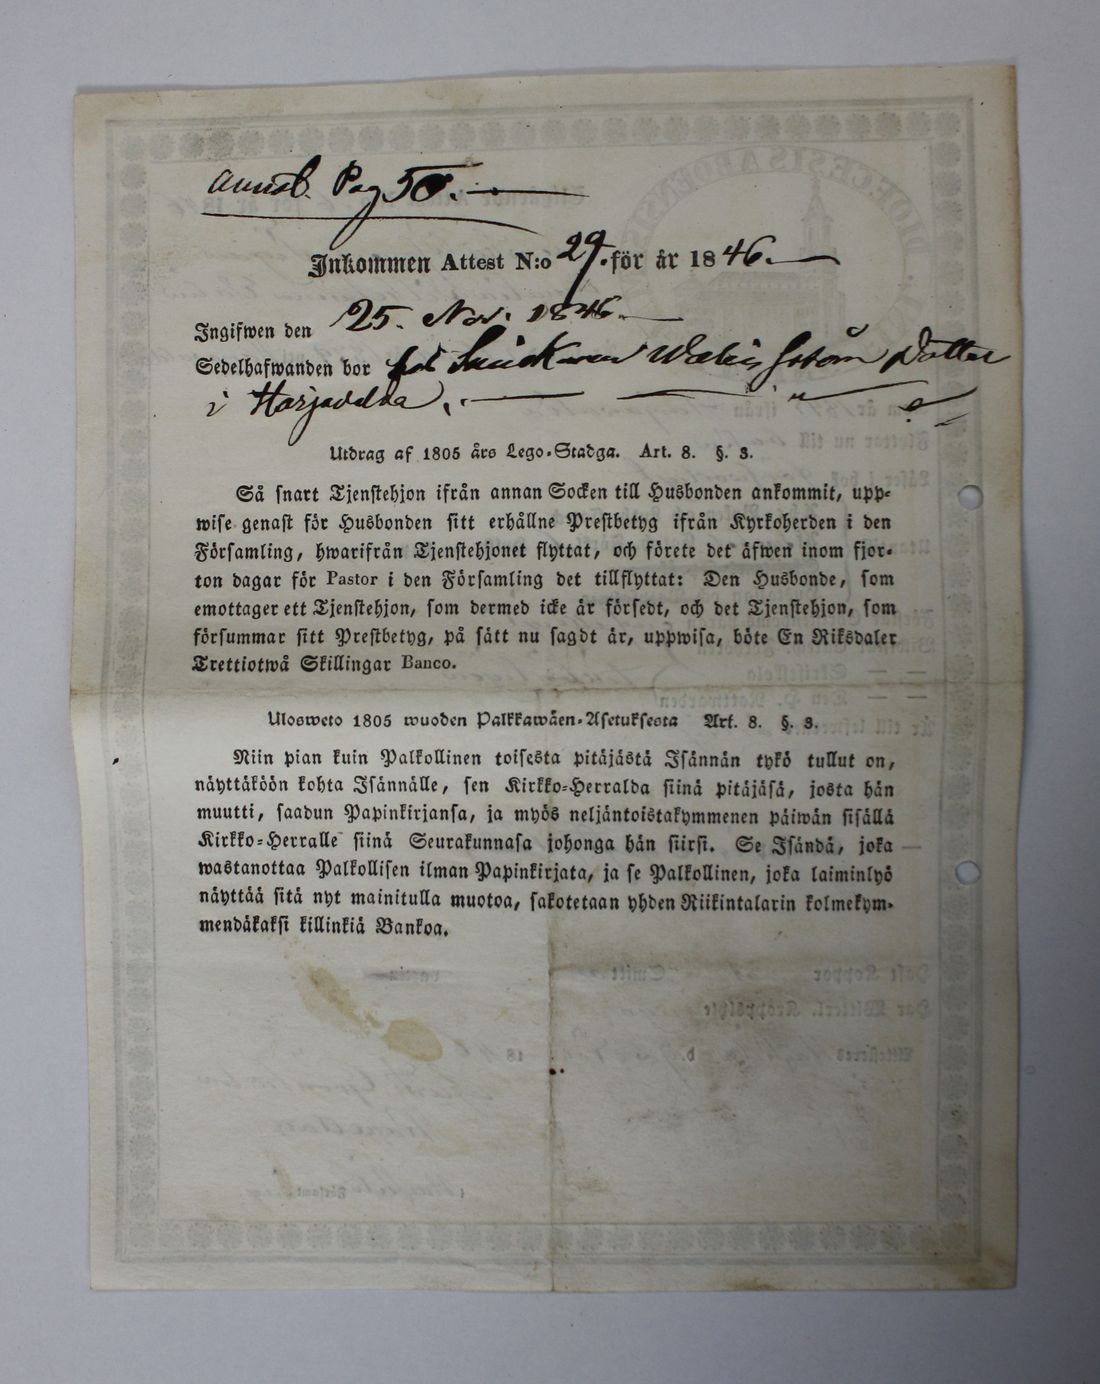 Pag 50.
Inkommen Attest N:o 29. för år 1846.
Ingifwen den 25. Nov. 1846.
Sedelhafwanden bor
i Harjavalda
Utdrag af 1805 års Lego-Stadga. Art. 8. §. 3.
Så snart Tjenstehjon ifrån annan Socken till Husbonden ankommit, upp-
wise genast för Husbonden sitt erhållne Prestbetyg ifrån Kyrkoherden i den
Församling, hwarifrån Tjenstehjonet flyttat, och förete det äfwen inom fjor-
ton dagar för Pastor i den Församling det tillflyttat: Den Husbonde, som
emottager ett Tjenstehjon, som dermed icke är försedt, och det Tjenstehjon, som
försummar sitt Prestbetyg, på sätt nu sagdt är, uppwisa, böte En Riksdaler
Trettiotwå Skillingar Banco.
Ulosweto 1805 wuoden Palkkawäen-Asetuksesta Art. 8. §. 3.
Niin pian kuin Palkollinen toisesta pitäjästä Isännän tykö tullut on,
näyttäköön kohta Isännälle, sen Kirkko-Herralda siinä pitäjäsä, josta hän
muutti, saadun Papinkirjansa, ja myös neljäntoistakymmenen päiwän sisällä
Kirkko-Herralle siinä Seurakunnasa johonga hän siirsi. Se Isändä, joka
wastanottaa Palkollisen ilman Papinkirjata, ja se Palkollinen, joka laiminlyö
näyttää sitä nyt mainitulla muotoa, sakotetaan yhden Riikintalarin kolmekym-
mendäkaksi killinkiä Bankoa.